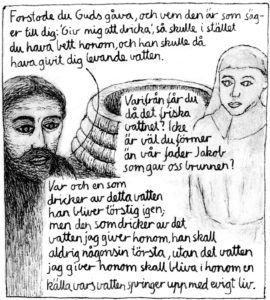 Förstode du Guds gåva, och vem den är som säg-
er till dig: 'Giv mig att dricka', så skulle i stället
du hava bett honom, och han skulle då
hava givit dig levande vatten.
Varifrån får du
då det friska
vattnet? Icke
är väl du förmer
än vår fader Jakob
som gav oss brunnen?
Var och en som
dricker av detta vatten
han bliver törstig igen;
men den som dricker av det
vatten jag giver honom, han skall
aldrig någonsin törsta, utan det vatten
jag giver honom skall bliva i honom en
källa vars vatten springer upp med evigt liv.